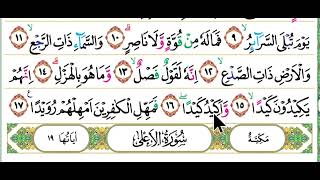 يَوْمَ تُبْلَى السَّرَآئِرُ ۙ ﴿٩﴾ فَمَا لَهٗ مِنْ قُوَّةٍ وَّلَا نَاصِرٍ ؕ ﴿١٠﴾ وَالسَّمَآءِ ذَاتِ الرَّجْعِ ۙ ﴿١١﴾
وَالْاَرْضِ ذَاتِ الصَّدْعِ ۙ ﴿١٢﴾ اِنَّهٗ لَقَوْلٌ فَصْلٌ ۙ ﴿١٣﴾ وَّمَا هُوَ بِالْهَزْلِ ؕ ﴿١٤﴾ اِنَّهُمْ
يَكِيْدُوْنَ كَيْدًا ۙ ﴿١٥﴾ وَّاَكِيْدُ كَيْدًا ۚ ﴿١٦﴾ فَمَهِّلِ الْكٰفِرِيْنَ اَمْهِلْهُمْ رُوَيْدًا ﴿١٧﴾
مَكِّيَّةٌ سُوْرَةُ الْاَعْلٰى اٰيَاتُهَا ١٩